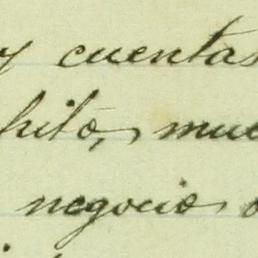 y cuentas
hito, muc
negocio